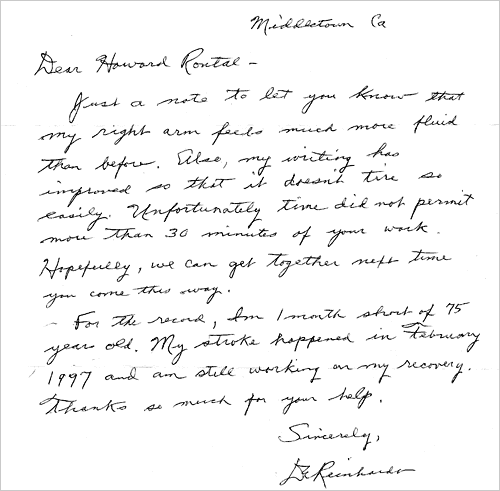 Middletown Ca
Dear Howard Rontal –
Just a note to let you know that
my right arm feels much more fluid
than before. Also, my writing has
improved so that it doesn't tire so
easily. Unfortunately time did not permit
more than 30 minutes of your work.
Hopefully, we can get together next time
you come this way.
– For the record, Im 1 month short of 75
years old. My stroke happened in February
1997 and am still working on my recovery.
Thanks so much for your help.
Sincerely,
Reinhardt